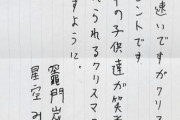 速いですがクリス
ントです
の子供達が笑
られるクリスマ
すように。
竈門炭
星空み